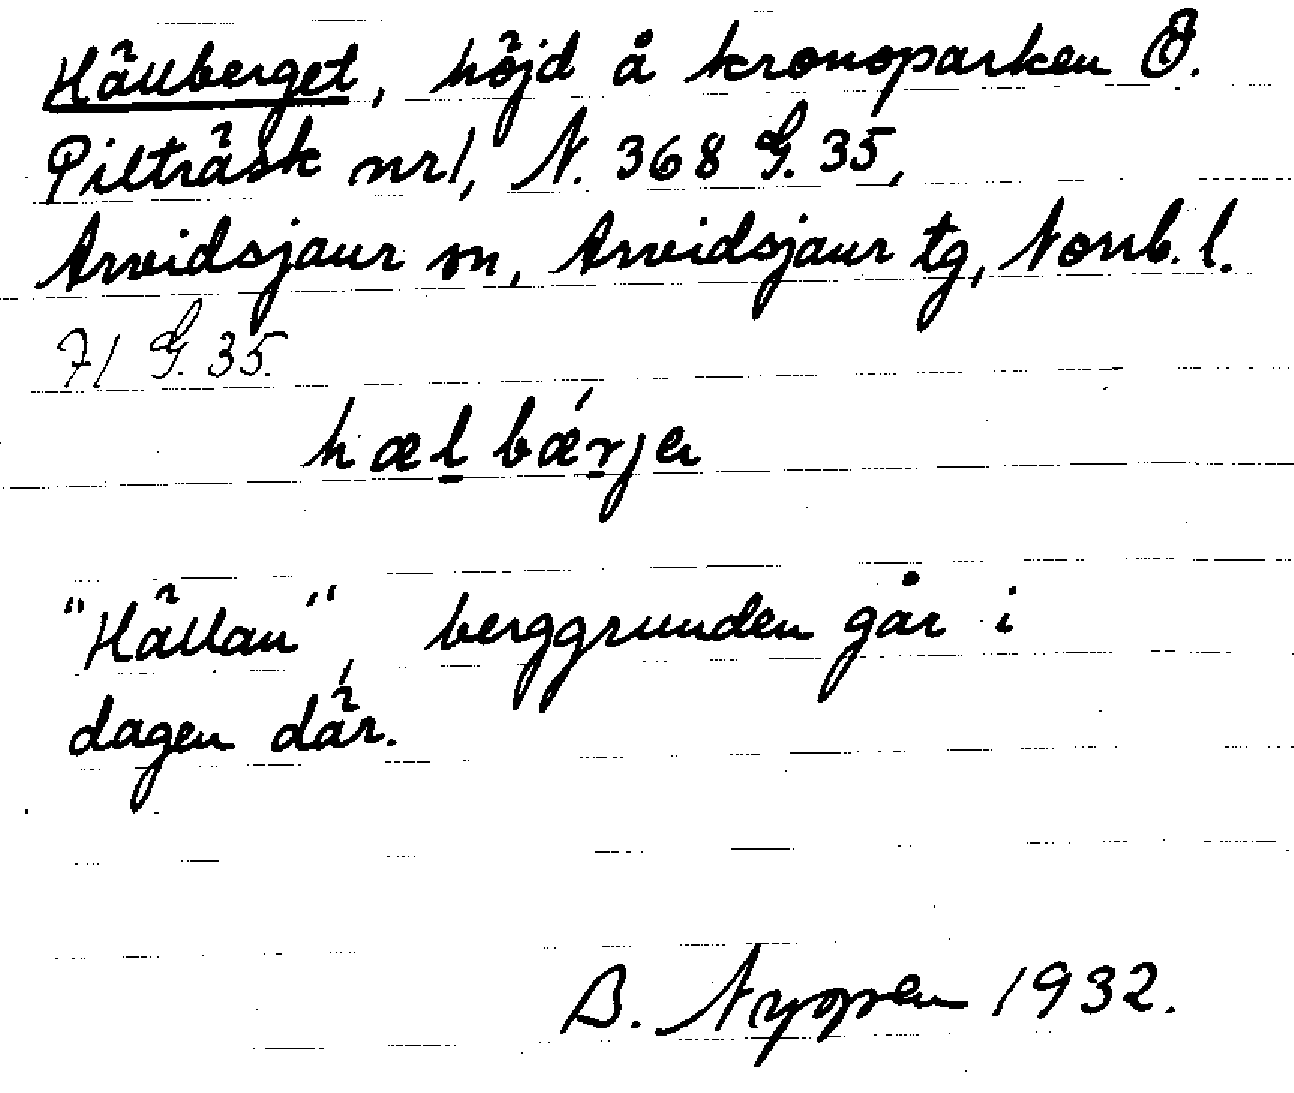 Hällberget, höjd å kronoparken Ö.
Pilträsk nr1, N. 368 G. 35,
Arvidsjaur sn, Arvidsjaur tg, Norrb. l.
71 G. 35.
hælbǽrje
"Hällan", berggrunden går i
dagen där.
B. Nyppen 1932.